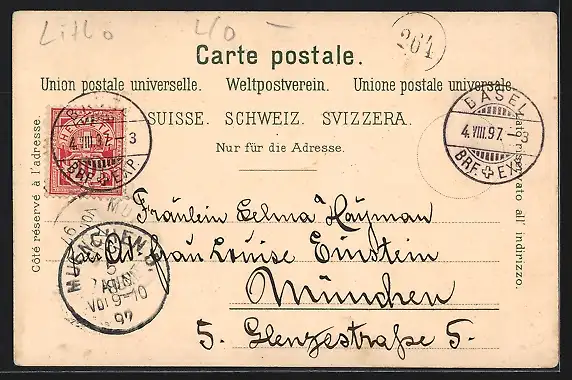 Litho 40 –
264
Carte postale.
Union postale universelle. Weltpostverein. Unione postale universale.
SUISSE. SCHWEIZ. SVIZZERA.
Nur für die Adresse.
Côté réservé à l'adresse.
Lato riservato all' indirizzo.
BASEL
4.VIII.97.
BRF. EXP.
4.VIII.97. 3
BRF. EXP.
10
MUENCHEN
5
AUG
Vor 9-10
97
Fräulein Selma Hayman
Frau Louise Einstein
München
5. Glenzestraße 5.